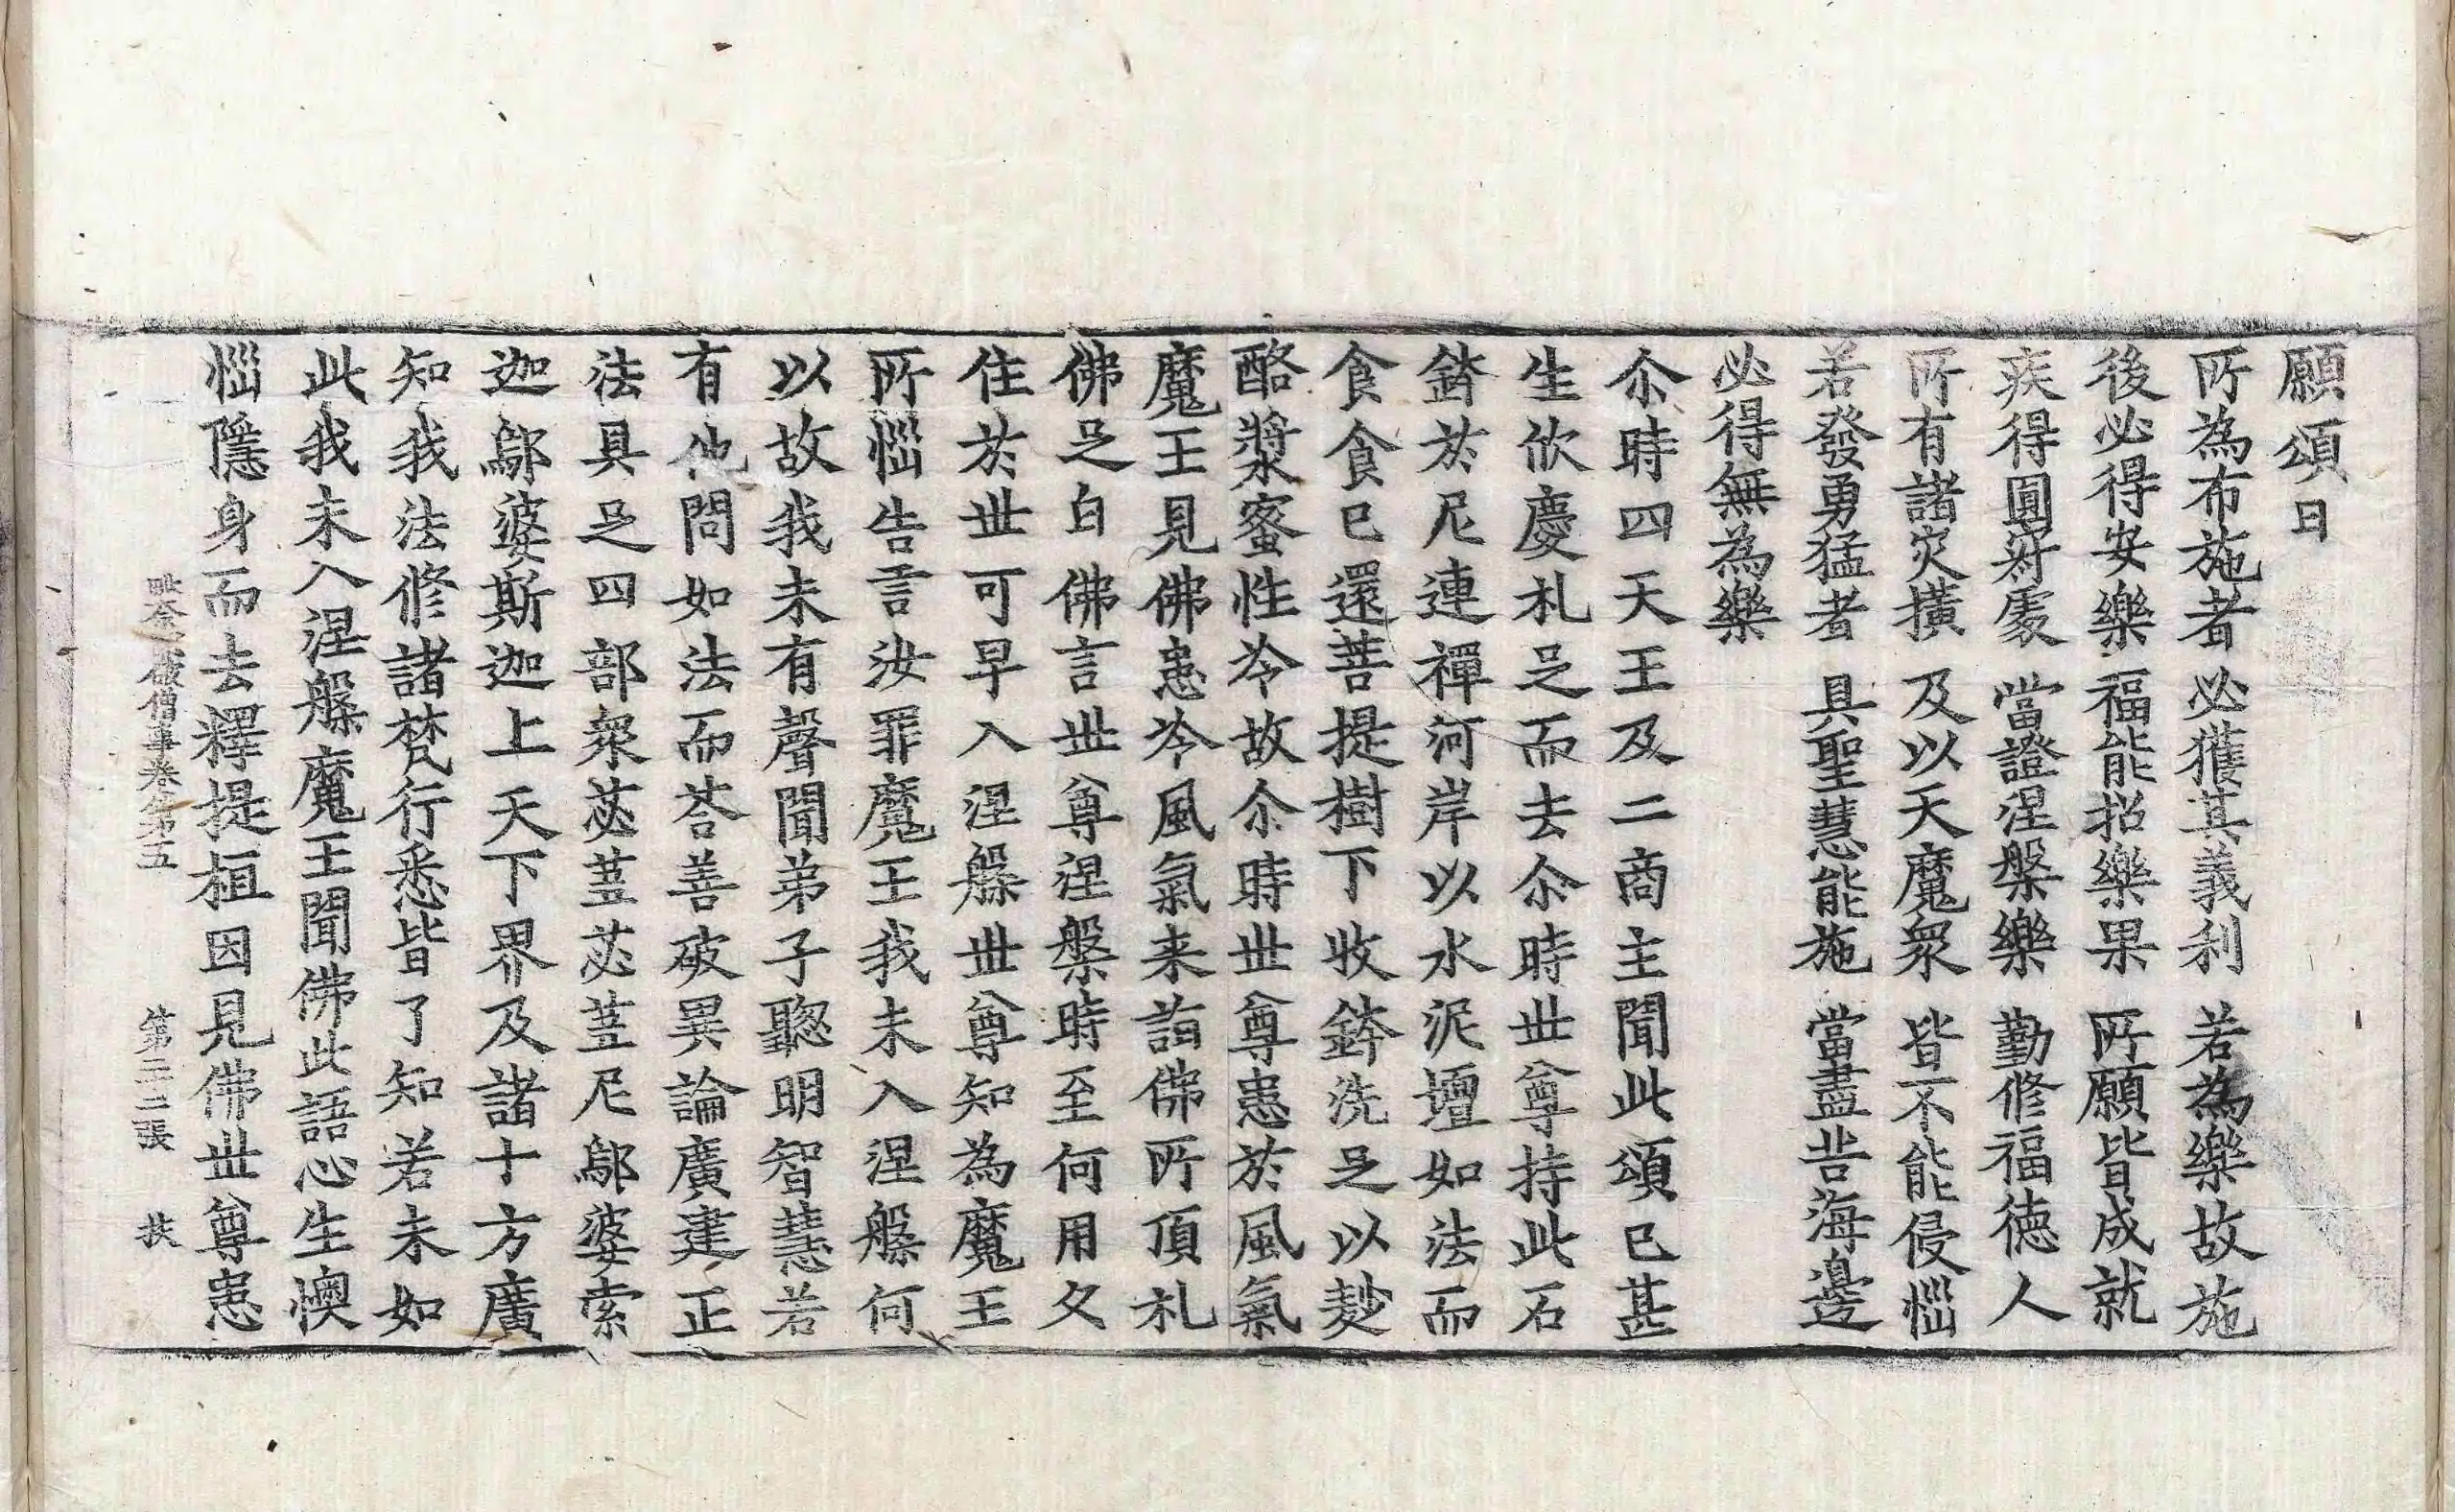 願頌曰
所為布施者 必獲其義利 若為樂故施
後必得安樂 福能招樂果 所願皆成就
疾得圓寂處 當證涅槃樂 勤修福德人
所有諸灾横 及以天魔衆 皆不能侵惱
若發勇猛者 具聖慧能施 當盡苦海邊
必得無為樂
尒時四天王及二商主聞此頌已甚
生欣慶札足而去尒時世尊持此石
鉢於尼連禪河岸以水泥壇如法而
食食已還菩提樹下收鉢洗足以麨
酪漿蜜性冷故尒時世尊患於風氣
魔王見佛患冷風氣来詣佛所頂札
佛足白佛言世尊涅槃時至何用久
住於世可早入涅槃世尊知為魔王
所惱告言汝罪魔王我未入涅槃何
以故我未有聲聞弟子聦明智慧若
有他問如法而荅善破異論廣建正
法具足四部衆苾蒭苾蒭尼鄔婆索
迦鄔婆斯迦上天下界及諸十方廣
知我法修諸梵行悉皆了知若未如
此我未入涅槃魔王聞佛此語心生懊
惱隱身而去釋提桓因見佛世尊患
破僧事卷第五 第二十二張 扶